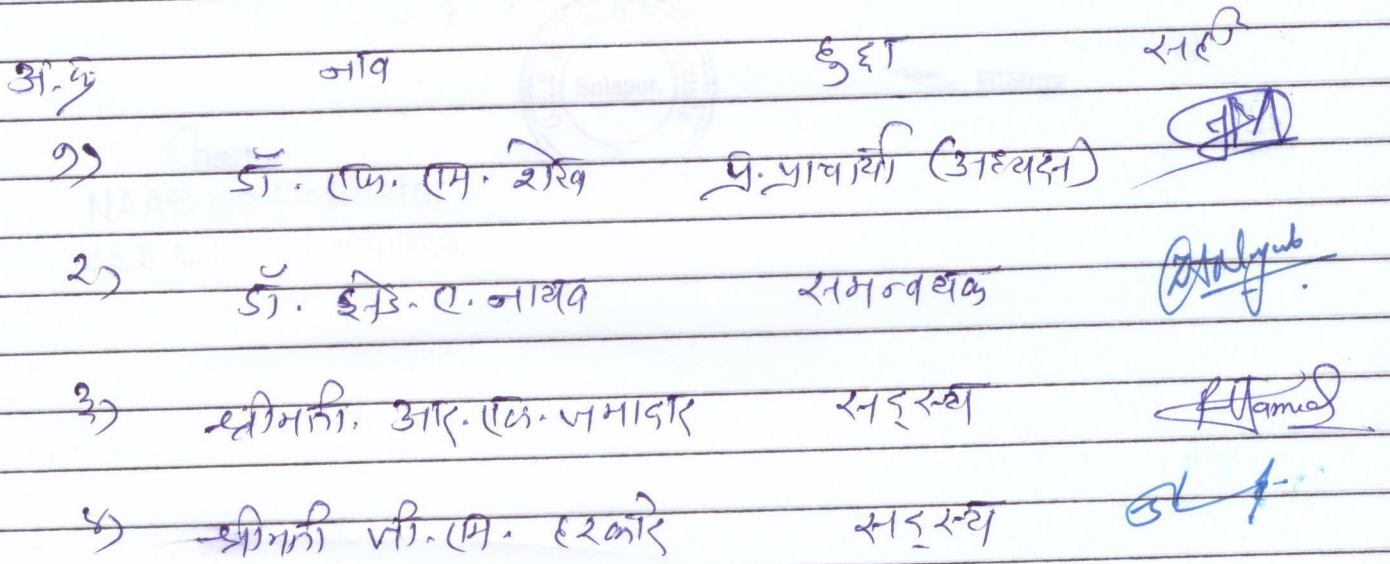 अ.क्र नाव हुद्दा सही
१) डॉ. एफ. एम. शेख प्र. प्राचार्या (अध्यक्ष)
२) डॉ. ई. डी. ए. नायब समन्वयक
३) श्रीमती. आर. एफ. जमादार सदस्य
४) श्रीमती जी. एम. हरकारे सदस्य
Solapur